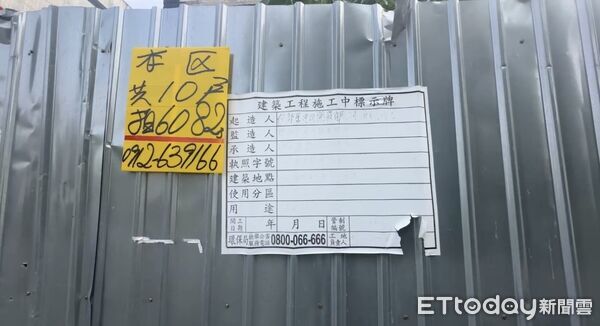 本区
共10戶
拍6082
0912-639166
建築工程施工中標示牌
起造人
監造人
承造人
執照字號
建築地點
使用分區
用途
開工日期 年 月 日 管制編號
環保局 0800-066-666 工地負責人
ETtoday新聞雲